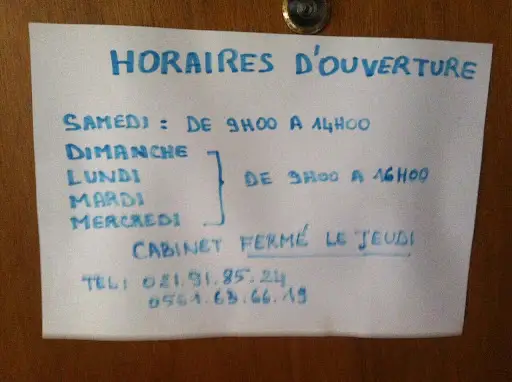 HORAIRES D'OUVERTURE
SAMEDI : DE 9H00 A 14H00
DIMANCHE
LUNDI
DE 9H00 A 16H00
MARDI
MERCREDI
CABINET FERMÉ LE JEUDI
TEL: 021.91.85.24
0561.63.66.19